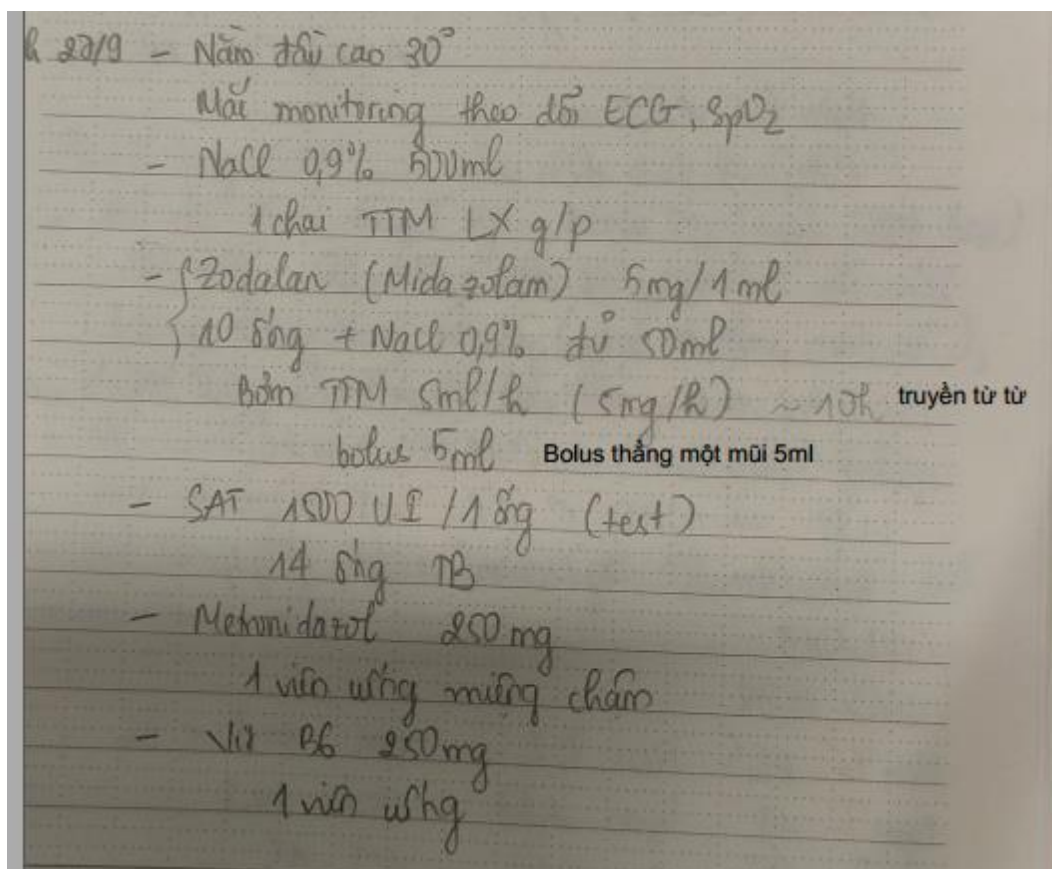 22/9 - Nằm đầu cao 30°
Mắc monitoring theo dõi ECG, SpO2
- NaCl 0,9% 500ml
1 chai TTM LX g/p
- Zodalan (Midazolam) 5mg/1ml
10 ống + NaCl 0,9% đủ 50ml
Bơm TTM 5ml/h (5mg/h) ~ 10h truyền từ từ
bolus 5ml Bolus thẳng một mũi 5ml
- SAT 1500 UI /1 ống (test)
14 ống TB
- Metronidazol 250mg
1 viên uống
- Vit B6 250mg
1 viên uống